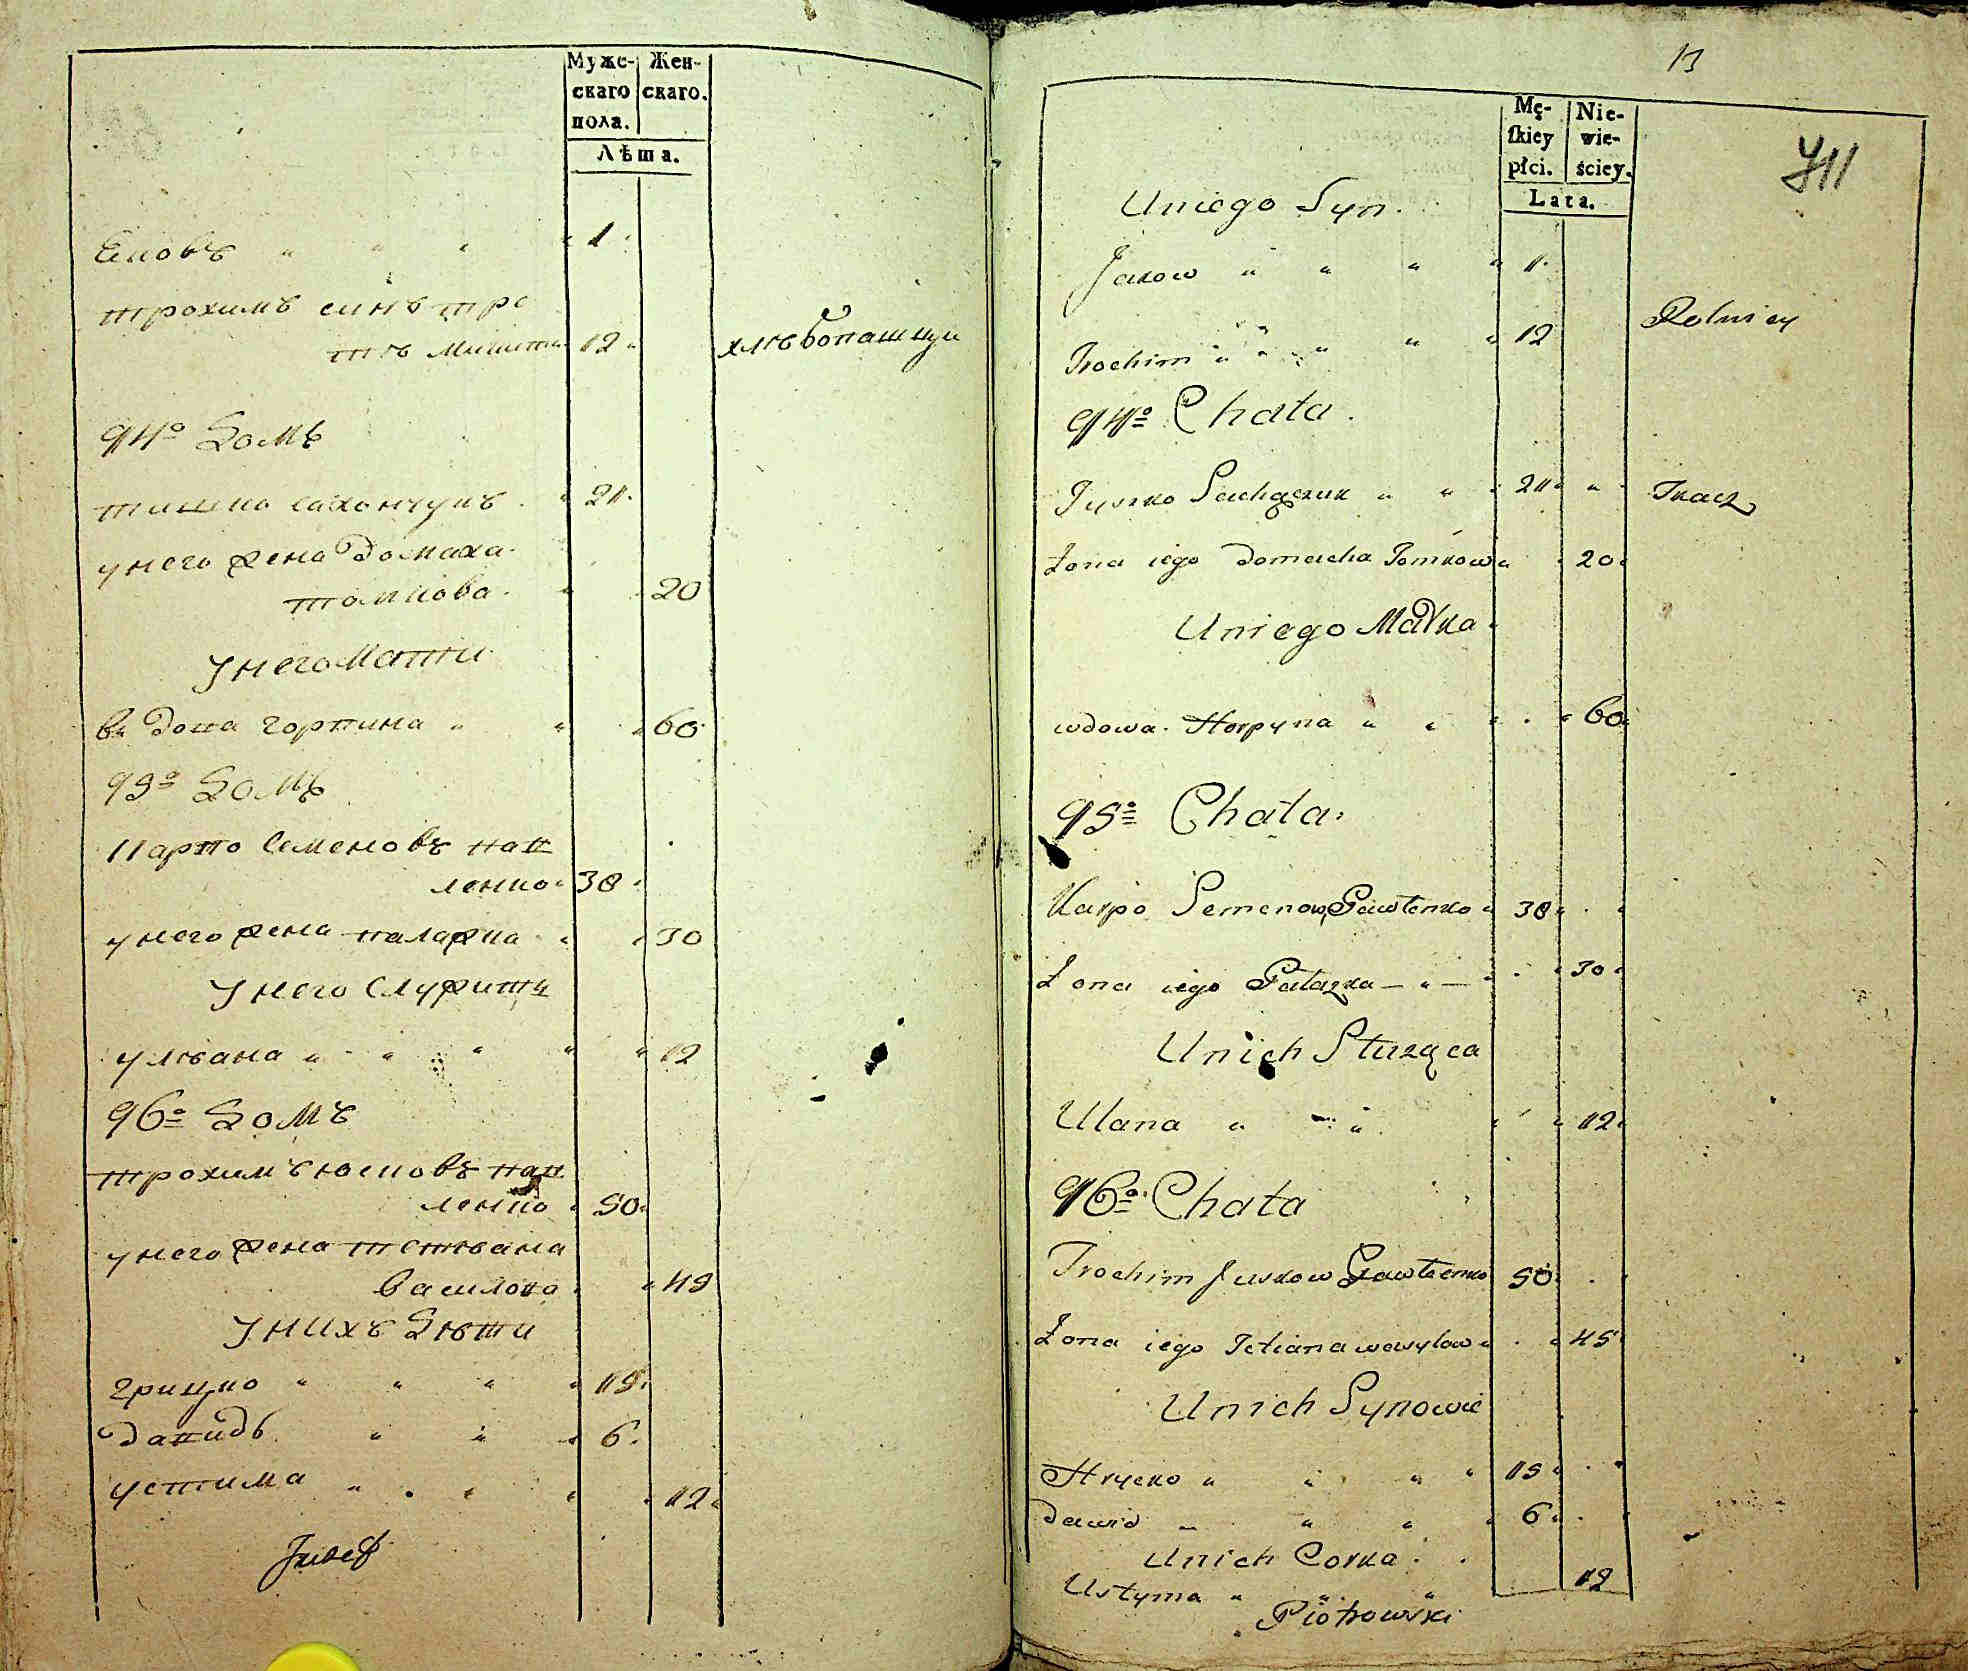 Муже-
скаго
пола.
Жен-
скаго.
Лѣта.
Яковъ " " " " 1.
трохимъ синъ тре
12.
хлѣбопашцы
94º Домъ
тишко сахончукъ . " 21.
у него жена Домаха.
томкова. " 20
У него Мати
вдова горпина " " " 60.
95º Домъ
Карпо Семеновъ пав
ленко " 38.
у него жена палажка " " 30
У него Служити
уляана " " " " " 12
96º Домъ
трохимъ юсковъ пав
ленко " 50.
у него жена тетяана
Василова . " 45
У нихъ Дѣти
грицко " " " " 15.
давидъ " " " 6.
устима " " " " 12.
Józef
13
711
Mę-
ſkiey
płci.
Nie-
wie-
ściey.
Lata.
Uniego Syn.
Jakow " " " " 1.
Trochim " " " " " 12
Rolnicy
94º Chata.
Tyszko Sachączuk " " " 21. " "
Tkacz
Żona iego Domacha Tomkow " " 20.
Uniego Matka
wdowa. Horpyna " " " . " 60.
95º Chata.
Karpo Semenow Pawłenko " 38. . "
Żona iego Pałazka — " — " . " 30.
Unich Służąca
Ulana " " " " " " 12.
96º Chata
Trochim Juskow Pawłenko 50 . .
Żona iego Tetiana wasylow " . " 45
Unich Synowie
Hrycko " " " " 15. . "
Dawid " " " " 6. . "
Unich Corka . .
Ustyma " " " 12
Piotrowski